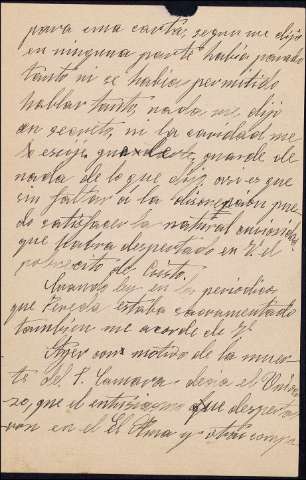 para una carta; segun me dijo
en ninguna parte habia parado
tanto ni se habia permitido
hablar tanto, nada me dijo
en secreto, ni la caridad me
lo exije guarde de
nada de lo que dijo, asi es que
sin faltar á la discrecion pue-
do satisfacer la natural curiosidad
que habra despertado en V. el
pobrecito de Cristo.
Cuando lei en los periodicos
que Pereda estaba sacramentado
tambien me acorde de V.
Ayer con motivo de la muer-
te del P. Camara decia el Univer-
so, que el entusiasmo que desperta-
ron en el El Ama y otras comp